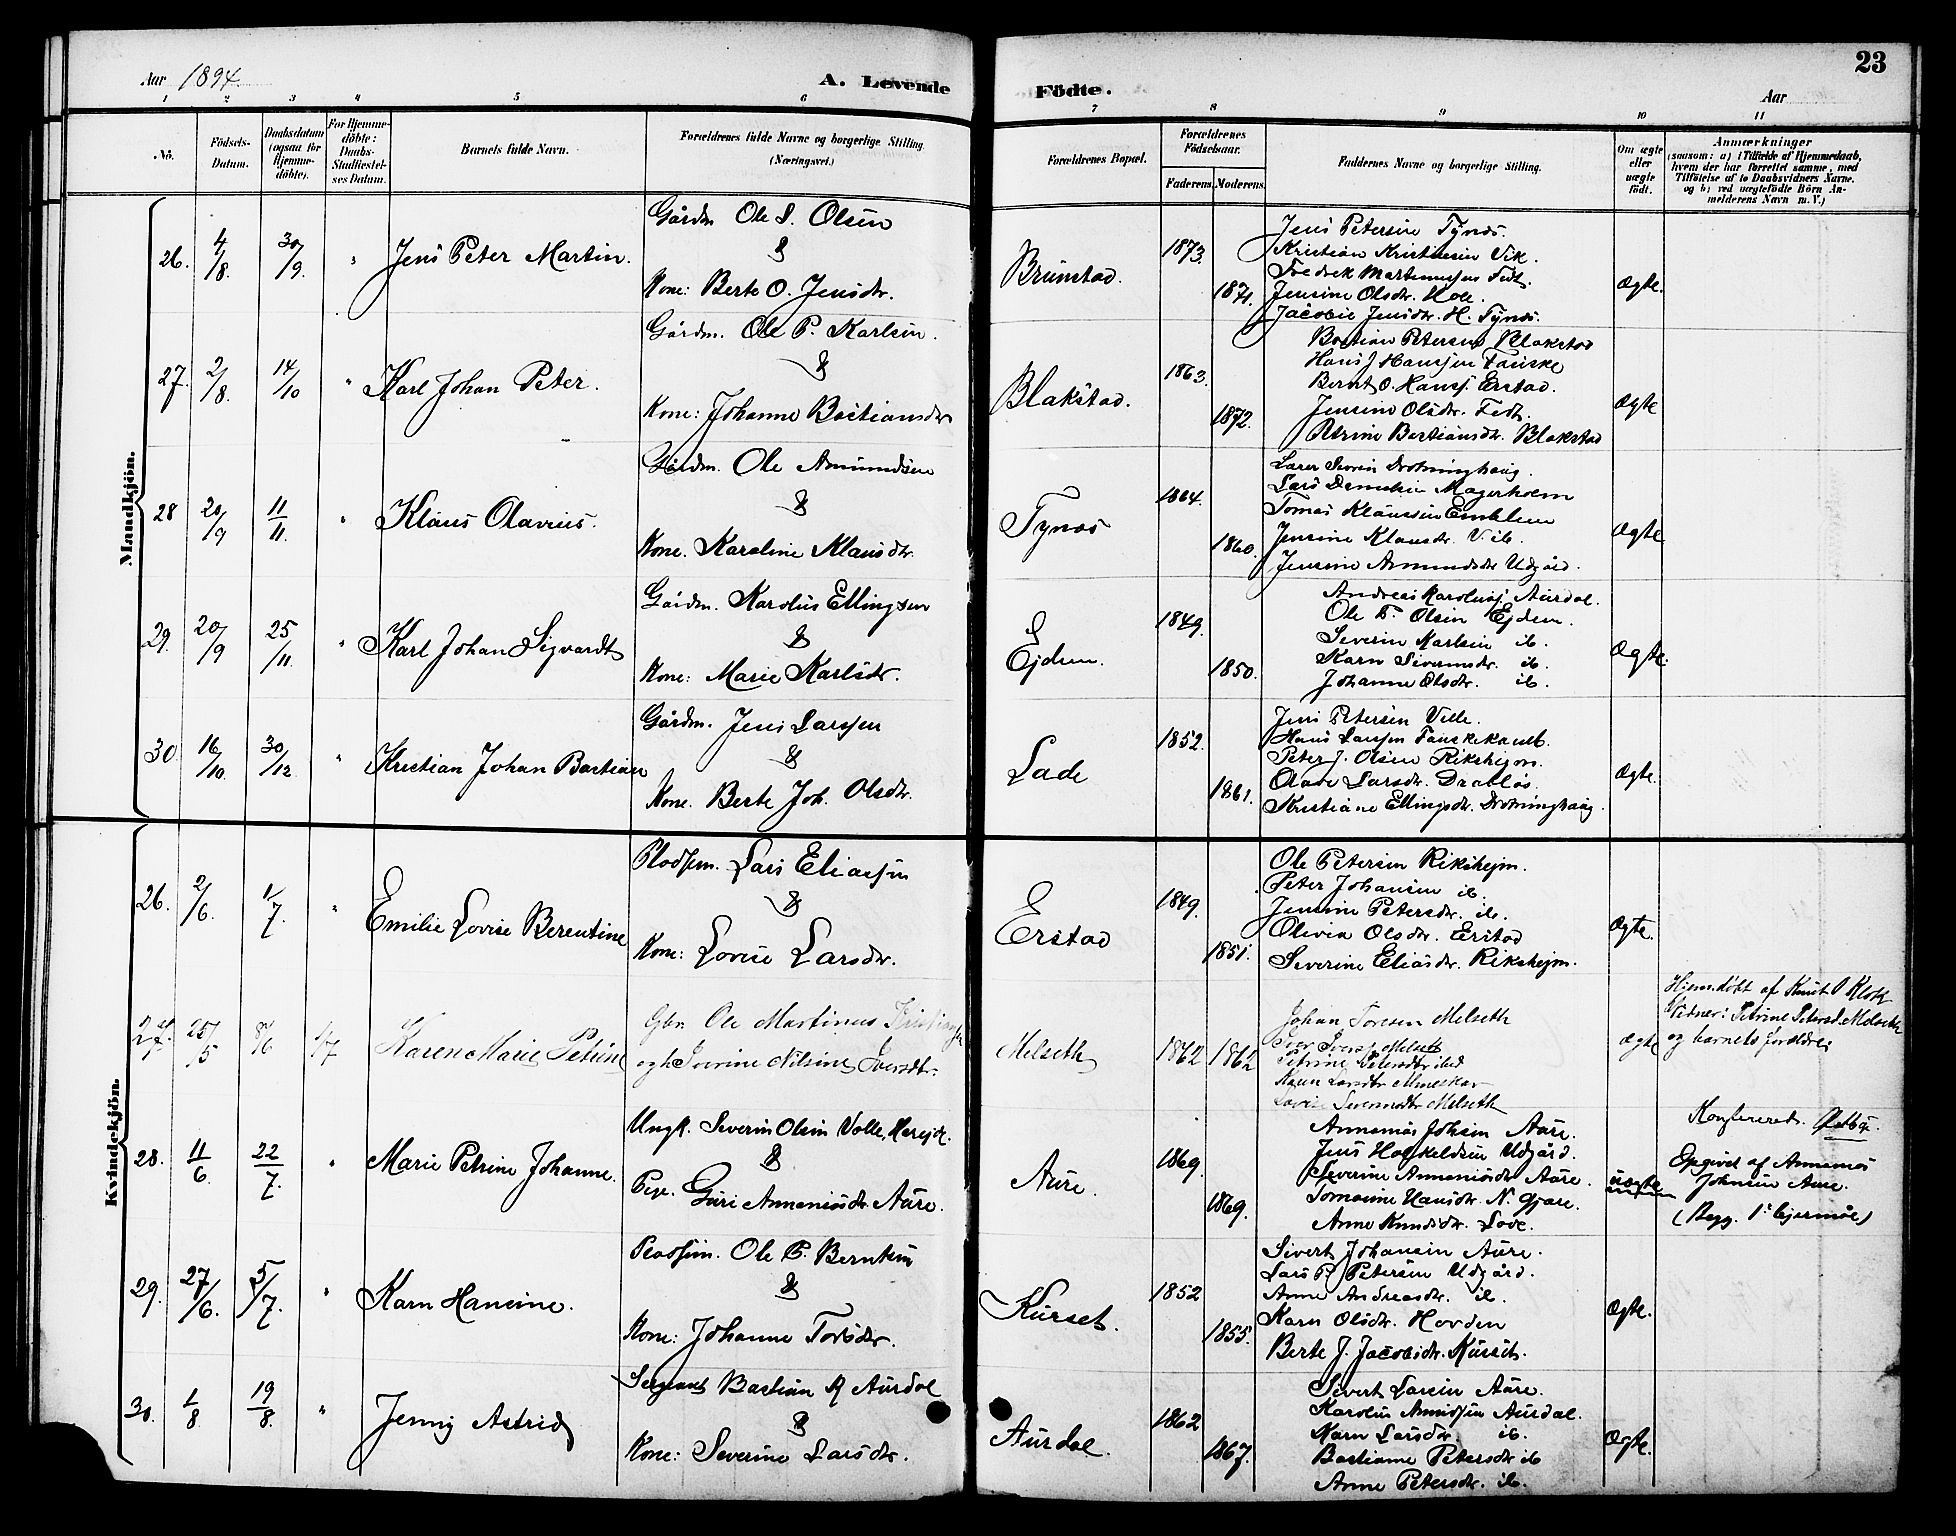 Aar 1894. A. Levende Födte. Aar 23
1 2 3 4 5 6 7 8 9 10 11
No.
Födsels-Datum.
Daabsdatum (ogsaa for Hjemme-döbte).
For Hjemme-döbte: Daabs-Stadfæstel-ses Datum.
Barnets fulde Navn.
Forældrenes fulde Navne og borgerlige Stilling (Næringsvei.)
Forældrenes Bopæl.
Forældrenes Födselsaar.
Faderens. Moderens.
Faddernes Navne og borgerlige Stilling.
Om ægte eller uægte födt.
Anmærkninger
(saasom: a) i Tilfælde af Hjemmedaab,
hvem der har forrettet samme, med
Tilföielse af to Daabsvidners Navne.
og b) ved uægtefödte Börn An-
melderens Navn m. V.)
Mandkjön.
26. 4/8. 30/9. " Jens Peter Martin.
Gårdm. Ole S. Olsen
&
Kone: Berte O. Jensdtr.
Brunstad. 1873. 1871.
Jens Petersen Tynes.
Kristian Kristensen Vik.
Fredrek Martinussen Fedt.
Jensine Olsdtr. Hole.
Jacobie Jensdtr. H. Tynes.
Ægte.
27. 2/8. 14/10 " Karl Johan Peter.
Gårdm. Ole P. Karlsen.
&
Kone: Johanne Bastiansdtr
Blakstad. 1863. 1872.
Bastian Petersen Blakstad
Hans J Hanssen Fauske
Bernt O. Hanss. Erstad.
Jensine Olsdtr. Fedt.
Petrine Bastiansdtr. Blakstad
Ægte
28 20/9 11/11. " Klaus Olavius.
Gårdm. Ole Amundsen
&
Kone. Karoline Klausdtr.
Tynes 1864. 1860.
Lars Severin Drotninghaug.
Lars Danielsen Magerholm
Tomas Klaussen Emblem
Jensine Klausdtr. Vik.
Jensine Amundsdtr Udgård.
Ægte
29. 20/9 25/11. " Karl Johan Sigvardt
Gårdm. Karolus Ellingsen
&
Kone: Marie Karlsdtr.
Ejdem. 1849. 1850.
Andreas Karoluss. Aurdal.
Ole T. Olsen Ejdem.
Severin Karlsen ib.
Karn Severinsdtr. ib.
Johanne Olsdtr. ib.
Ægte.
30 16/10. 30/12 " Kristian Johan Bastian
Gårdm. Jens Larssen
&
Kone. Berte Joh. Olsdtr.
Lade 1852. 1861.
Jens Petersen Velle.
Hans Larssen Fauskekant.
Peter J. Olsen Rikshejm.
Olave Larsdtr. Drabløs.
Kristiane Ellingsdtr. Drotninghaug.
Ægte.
Kvindekjön.
26. 2/6. 1/7. " Emilie Lovise Berentine
Pladssm. Lars Eliassen
&
Kone: Lovise Larsdtr.
Erstad 1849. 1851.
Ole Petersen Rikshejm.
Peter Johansen ib.
Jensine Petersdtr. ib.
Olivia Olsdtr. Erstad
Severine Eliasdtr. Rikshejm.
Ægte.
27. 25/5 8/6 1/7 Karen Marie Petrine
Gbr. Ole Martinus Kristians.
og h. Severine Nilsine Iversdtr.
Melseth 1862 1862
Johan Toresen Melseth
Iver Iverss. Melseth
Petrine Petersdtr ibid
Karen Larsdtr
Lovise Severinsdtr Melseth
ægte
Hjemdöbt af Knut P Klok
Vidner: Petrine Petersd. Melseth
og barnets forældre.
28. 11/6. 22/7. " Marie Petrine Johanne.
Ungk. Severin Olsen Volle,
&
Pige. Guri Annaniasdtr. Aure.
Aure. 1869. 1869.
Annanias Johsen Aure.
Jens Hoskeldsen Udgård.
Severine Annaniasdtr Aure.
Tomasine Hansdtr. N. Gjære.
Anne Knudsdtr. Love.
uægte
Konfereret.
Opgivet af Annanias
Johnsen Aure.
(Begg. 1ste Lejermål)
29. 27/6. 5/7. " Karn Hansine.
Pladssm. Ole B. Berntsen
&
Kone: Johanne Toresdtr.
Kurset. 1852 1855.
Sivert Johansen Aure.
Lars P. Petersen Udgård.
Anne Andreasdtr. ib.
Karn Olsdtr. Hovden
Berte J. Jacobsdtr. Kurset.
Ægte.
30. 1/8 19/8. " Jenny Astrid
Sergeant Bastian A Aurdal
&
Kone: Severine Larsdtr.
Aurdal. 1862 1867.
Sivert Larsen Aure.
Karolus Annanissen Aurdal.
Karn Larsdtr. ib.
Bastiane Petersdtr ib
Anne Petersdtr. ib.
Ægte.